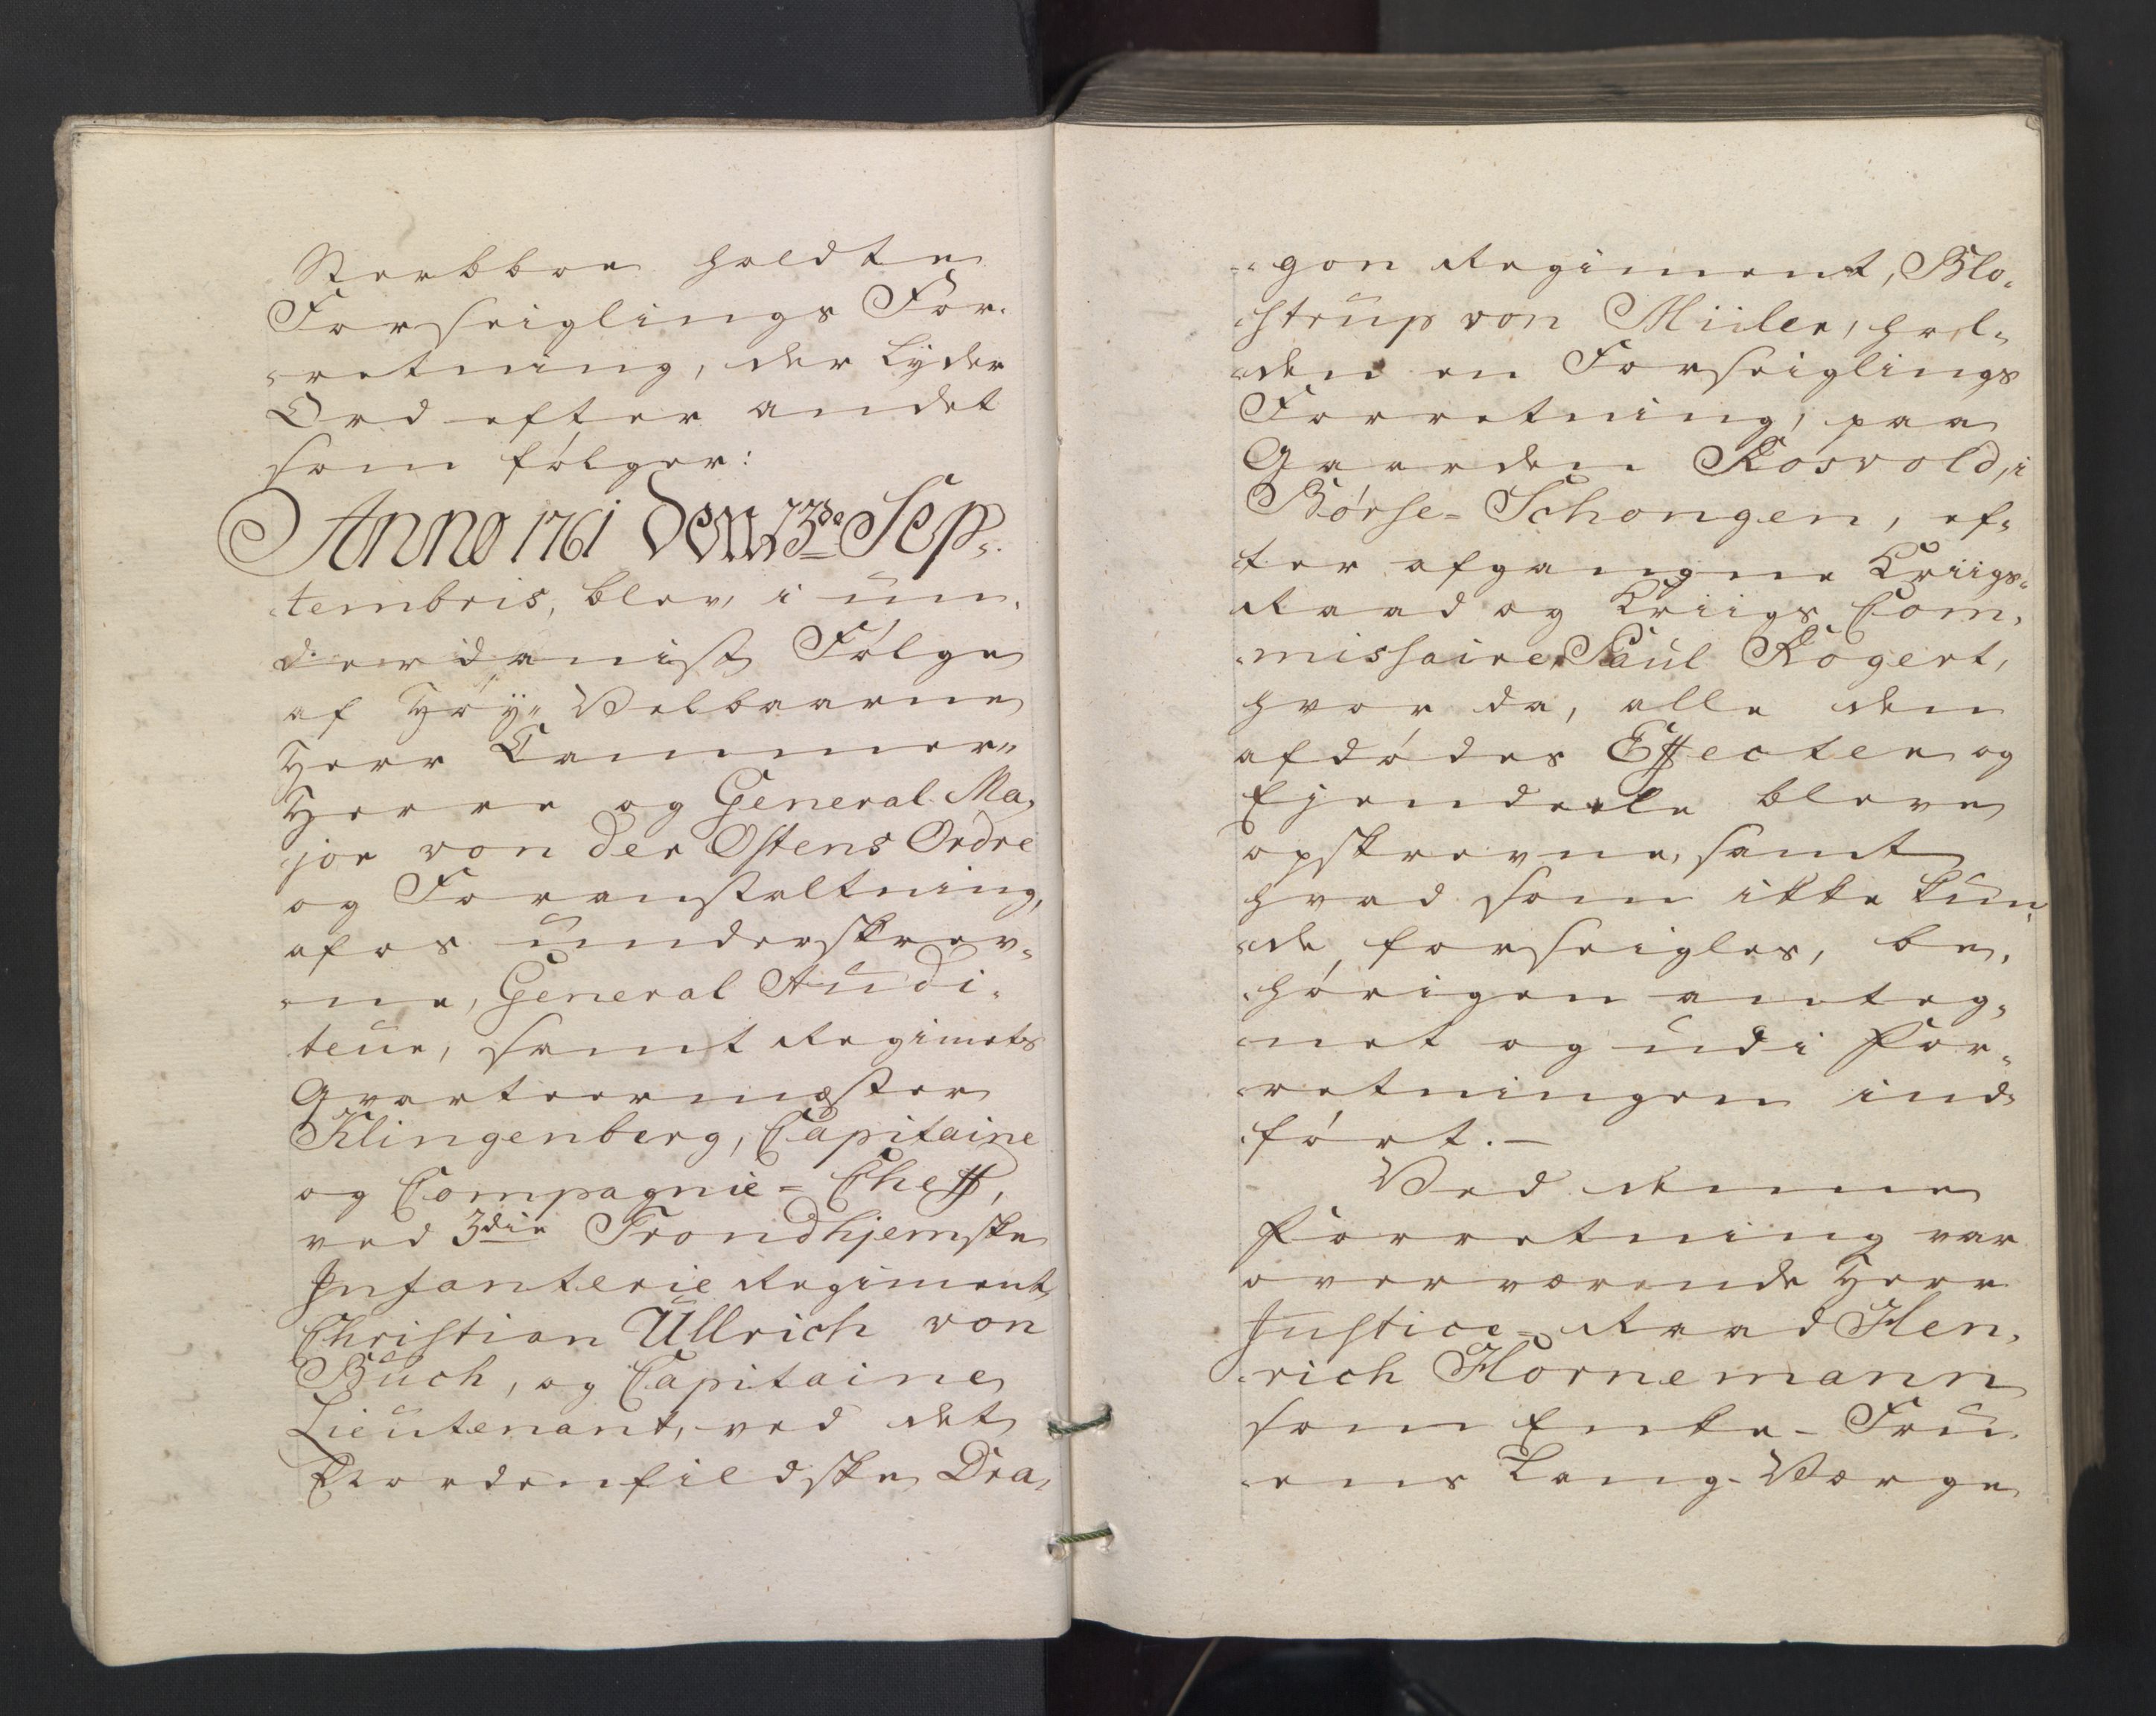 Sterbboe holdte
Forseiglings For-
-retning, der lÿder
Ord efter andet
som følger:
Anno 1761 den 23de Sep-
-tembris, blev i un-
derdanist Følge
af Høÿ- Velbaarne
Herr Cammer-
Herre og General-Ma-
-jor von der Ostens Ordre
og Foranstaltning,
af os underskrev-
-ne, General Audi-
-teur, samt Regimets
Qvarteermester
Klingenberg, Capitaine
og Compagnie-Cheff,
ved 3die Trondhjemske
Infanterie Regiment,
Christian Ullrich von
Buch, og Capitaine
Lieutenant, ved det
Nordenfieldske Dra-
-gon Regiment, Blo-
-strup von Müler, hol-
-den en Forseiglings
Forretning, paa
Gaarden Rosvold, i
Børse-Schongen, ef-
-ter afgangne Kriigs-
Raad og Kriigs Com-
-missaire, Paul Rogert,
hvor da, alle den
afdødes Effecter og
Ejendeele bleve
opskrevne, samt
hvad som ikke kun-
-de forseigles, be-
-hørigen anteg-
-net og udi For-
-retningen ind-
-ført.-
Ved denne
Forretning var
overværende Herr
Justice-Raad Hen-
-rich Hornemann
som Enke-Fru-
-ens Laug-Værge